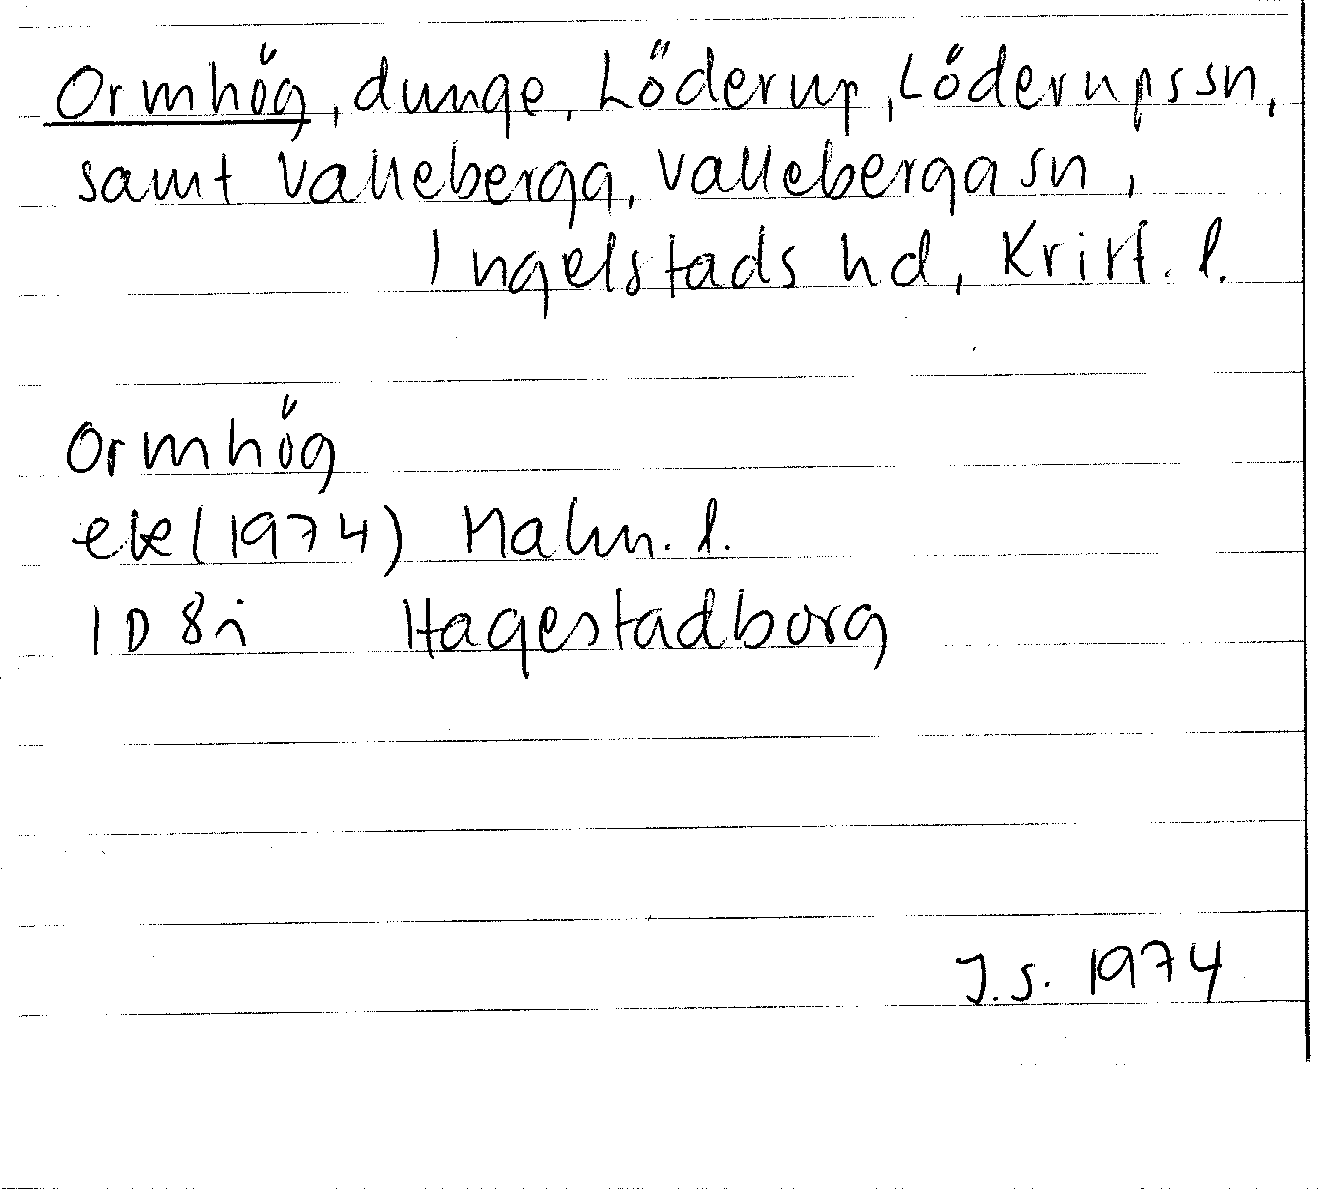 Ormhög, dunge, Löderup, Löderups sn,
samt Valleberga, Valleberga sn,
Ingelstads hd, Krist. l.
Ormhög
ek (1974) Malm. l.
1D 8i Hagestadborg
J.S. 1974